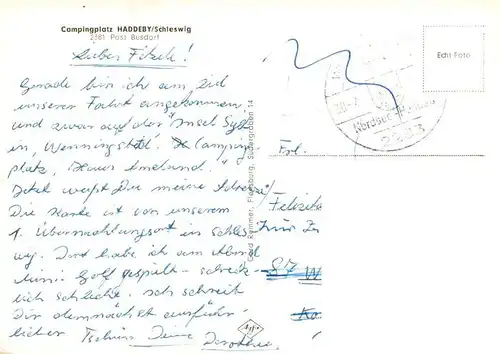 Campingplatz HADDEBY/Schleswig
2381 Post Busdorf
Lieber Fitzek!
Gerade bin ich am Ziel
unserer Fahrt angekommen
und zwar auf der Insel Sylt
in Wenningstedt. Camping-
platz „Haus Ameland."
Jetzt weißt Du meine Adresse!
Die Karte ist von unserem
1. Übernachtungsort in Schles-
wig. Dort habe ich am Abend
Mini Golf gespielt - schreck-
lich schlecht. Ich schreib
Dir demnächst ausführ-
licher. Tschüs Deine Dorothee
Gerd Remmer, Flensburg, Südergraben 14
Echt-Foto
Frl.
57
Agfa